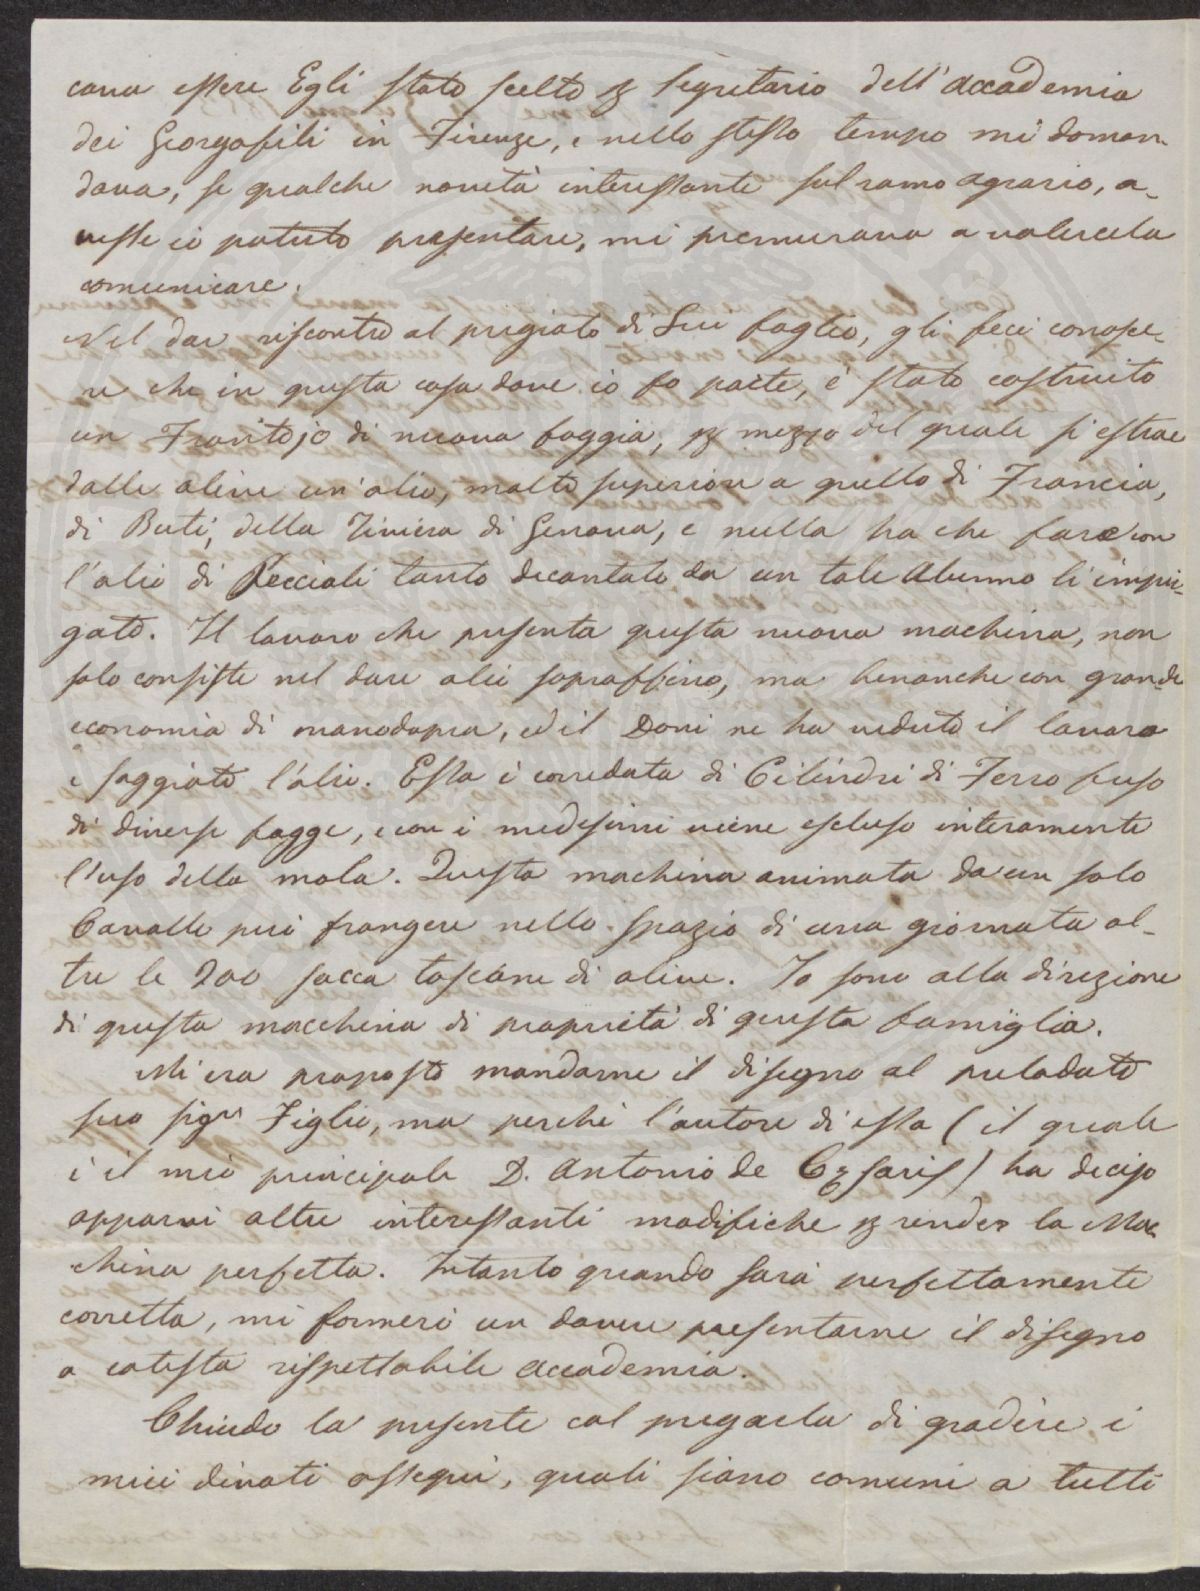 cava essere Egli stato scelto p Segretario dell'Accademia
dei Georgofili in Firenze, e nello stesso tempo mi doman-
dava, se qualche novità interessante sul ramo agrario, a-
vesse io potuto presentare, mi premurava a volercela
comunicare.
Nel dar riscontro al pregiato di Lui foglio, gli feci conosce-
re che in questa casa dove io fo parte, è stato costruito
un Frantojo di nuova foggia, p mezzo del quale si estrae
dalle olive un'olio, molto superiore a quello di Francia,
di Buti, della Riviera di Genova, e nulla ha che fare con
l'olio di Peccioli tanto decantato da un tale Alunno lì impie-
gato. Il lavoro che presenta questa nuova machina, non
solo consiste nel dare olio sopraffino, ma benanche con grande
economia di manodopra, ed il Doni ne ha veduto il lavoro
e saggiato l'olio. Essa è corredata di Cilindri di Ferro fuso
di diverse fogge, e con i medesimi viene escluso interamente
l'uso della mola. Questa machina animata da un solo
Cavallo può frangere nello spazio di una giornata ol-
tre le 200 sacca toscane di olive. Io sono alla direzione
di questa macchina di proprietà di questa famiglia.
Mi era proposto mandarne il disegno al prelodato
suo sigr Figlio, ma perchè l'autore di essa (il quale
è il mio principale D. Antonio de Cesaris) ha deciso
apporvi altre interessanti modifiche p render la Mac-
china perfetta. Intanto quando sarà perfettamente
corretta, mi formerò un dovere presentarne il disegno
a cotesta rispettabile Accademia.
Chiudo la presente col pregarla di gradire i
miei divoti ossequi, quali siano comuni a tutti